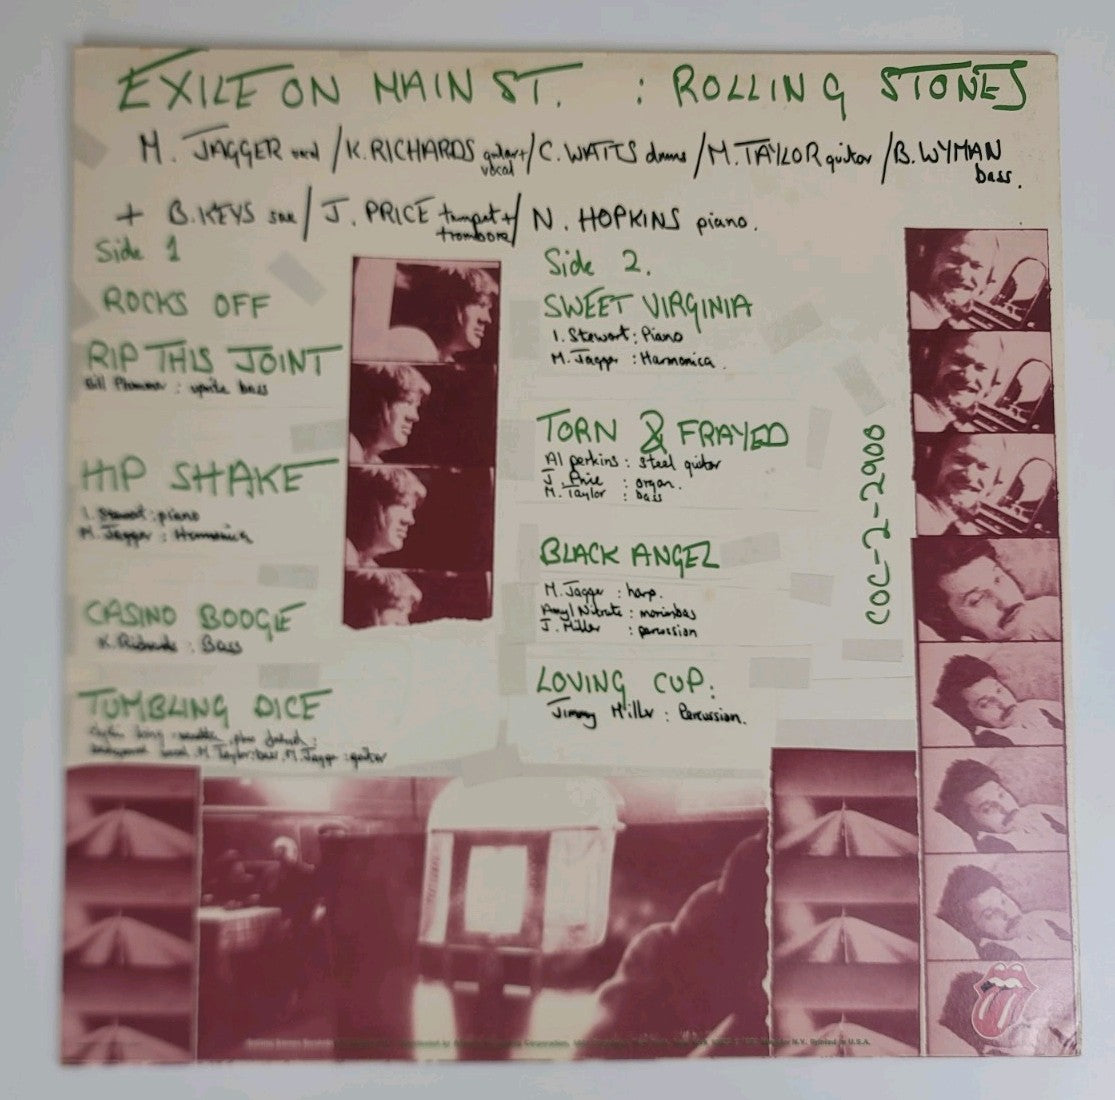 EXILE ON MAIN ST. : ROLLING STONES
M. JAGGER vocal / K. RICHARDS guitar + vocal / C. WATTS drums / M. TAYLOR guitar / B. WYMAN bass.
+ B. KEYS sax / J. PRICE trumpet + trombone / N. HOPKINS piano.
Side 1
ROCKS OFF
RIP THIS JOINT
Bill Plummer : uprite bass
HIP SHAKE
I. Stewart : piano
M. Jagger : Harmonica
CASINO BOOGIE
K. Richards : Bass
TUMBLING DICE
M. Taylor : bass, M. Jagger : guitar
Side 2.
SWEET VIRGINIA
I. Stewart : Piano
M. Jagger : Harmonica.
TORN & FRAYED
Al perkins : steel guitar
J. Price : organ.
M. Taylor : bass
BLACK ANGEL
M. Jagger : harp.
Amyl Nitrate : marimbas
J. Miller : percussion
LOVING CUP:
Jimmy Miller : Percussion.
COC-2-2900
Printed in U.S.A.